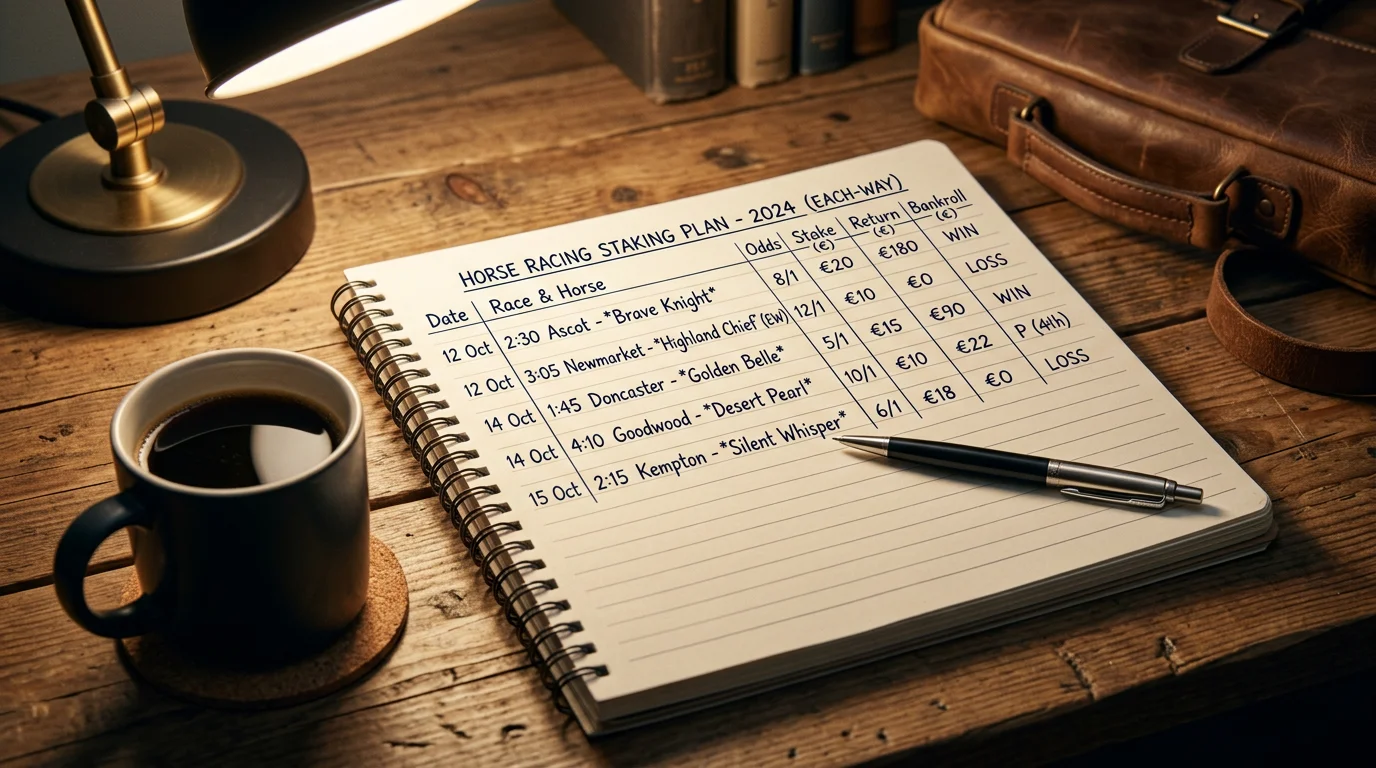 HORSE RACING STAKING PLAN - 2024 (EACH-WAY)
Date Race & Horse Odds Stake (€) Return (€) Bankroll (€)
12 Oct 2:30 Ascot - *Brave Knight* 8/1 €20 €180 WIN
12 Oct 3:05 Newmarket - *Highland Chief* (EW) 12/1 €10 €0 LOSS
14 Oct 1:45 Doncaster - *Golden Belle* 5/1 €15 €90 WIN
14 Oct 4:10 Goodwood - *Desert Pearl* 10/1 €10 €22 P (4th)
15 Oct 2:15 Kempton - *Silent Whisper* 6/1 €18 €0 LOSS